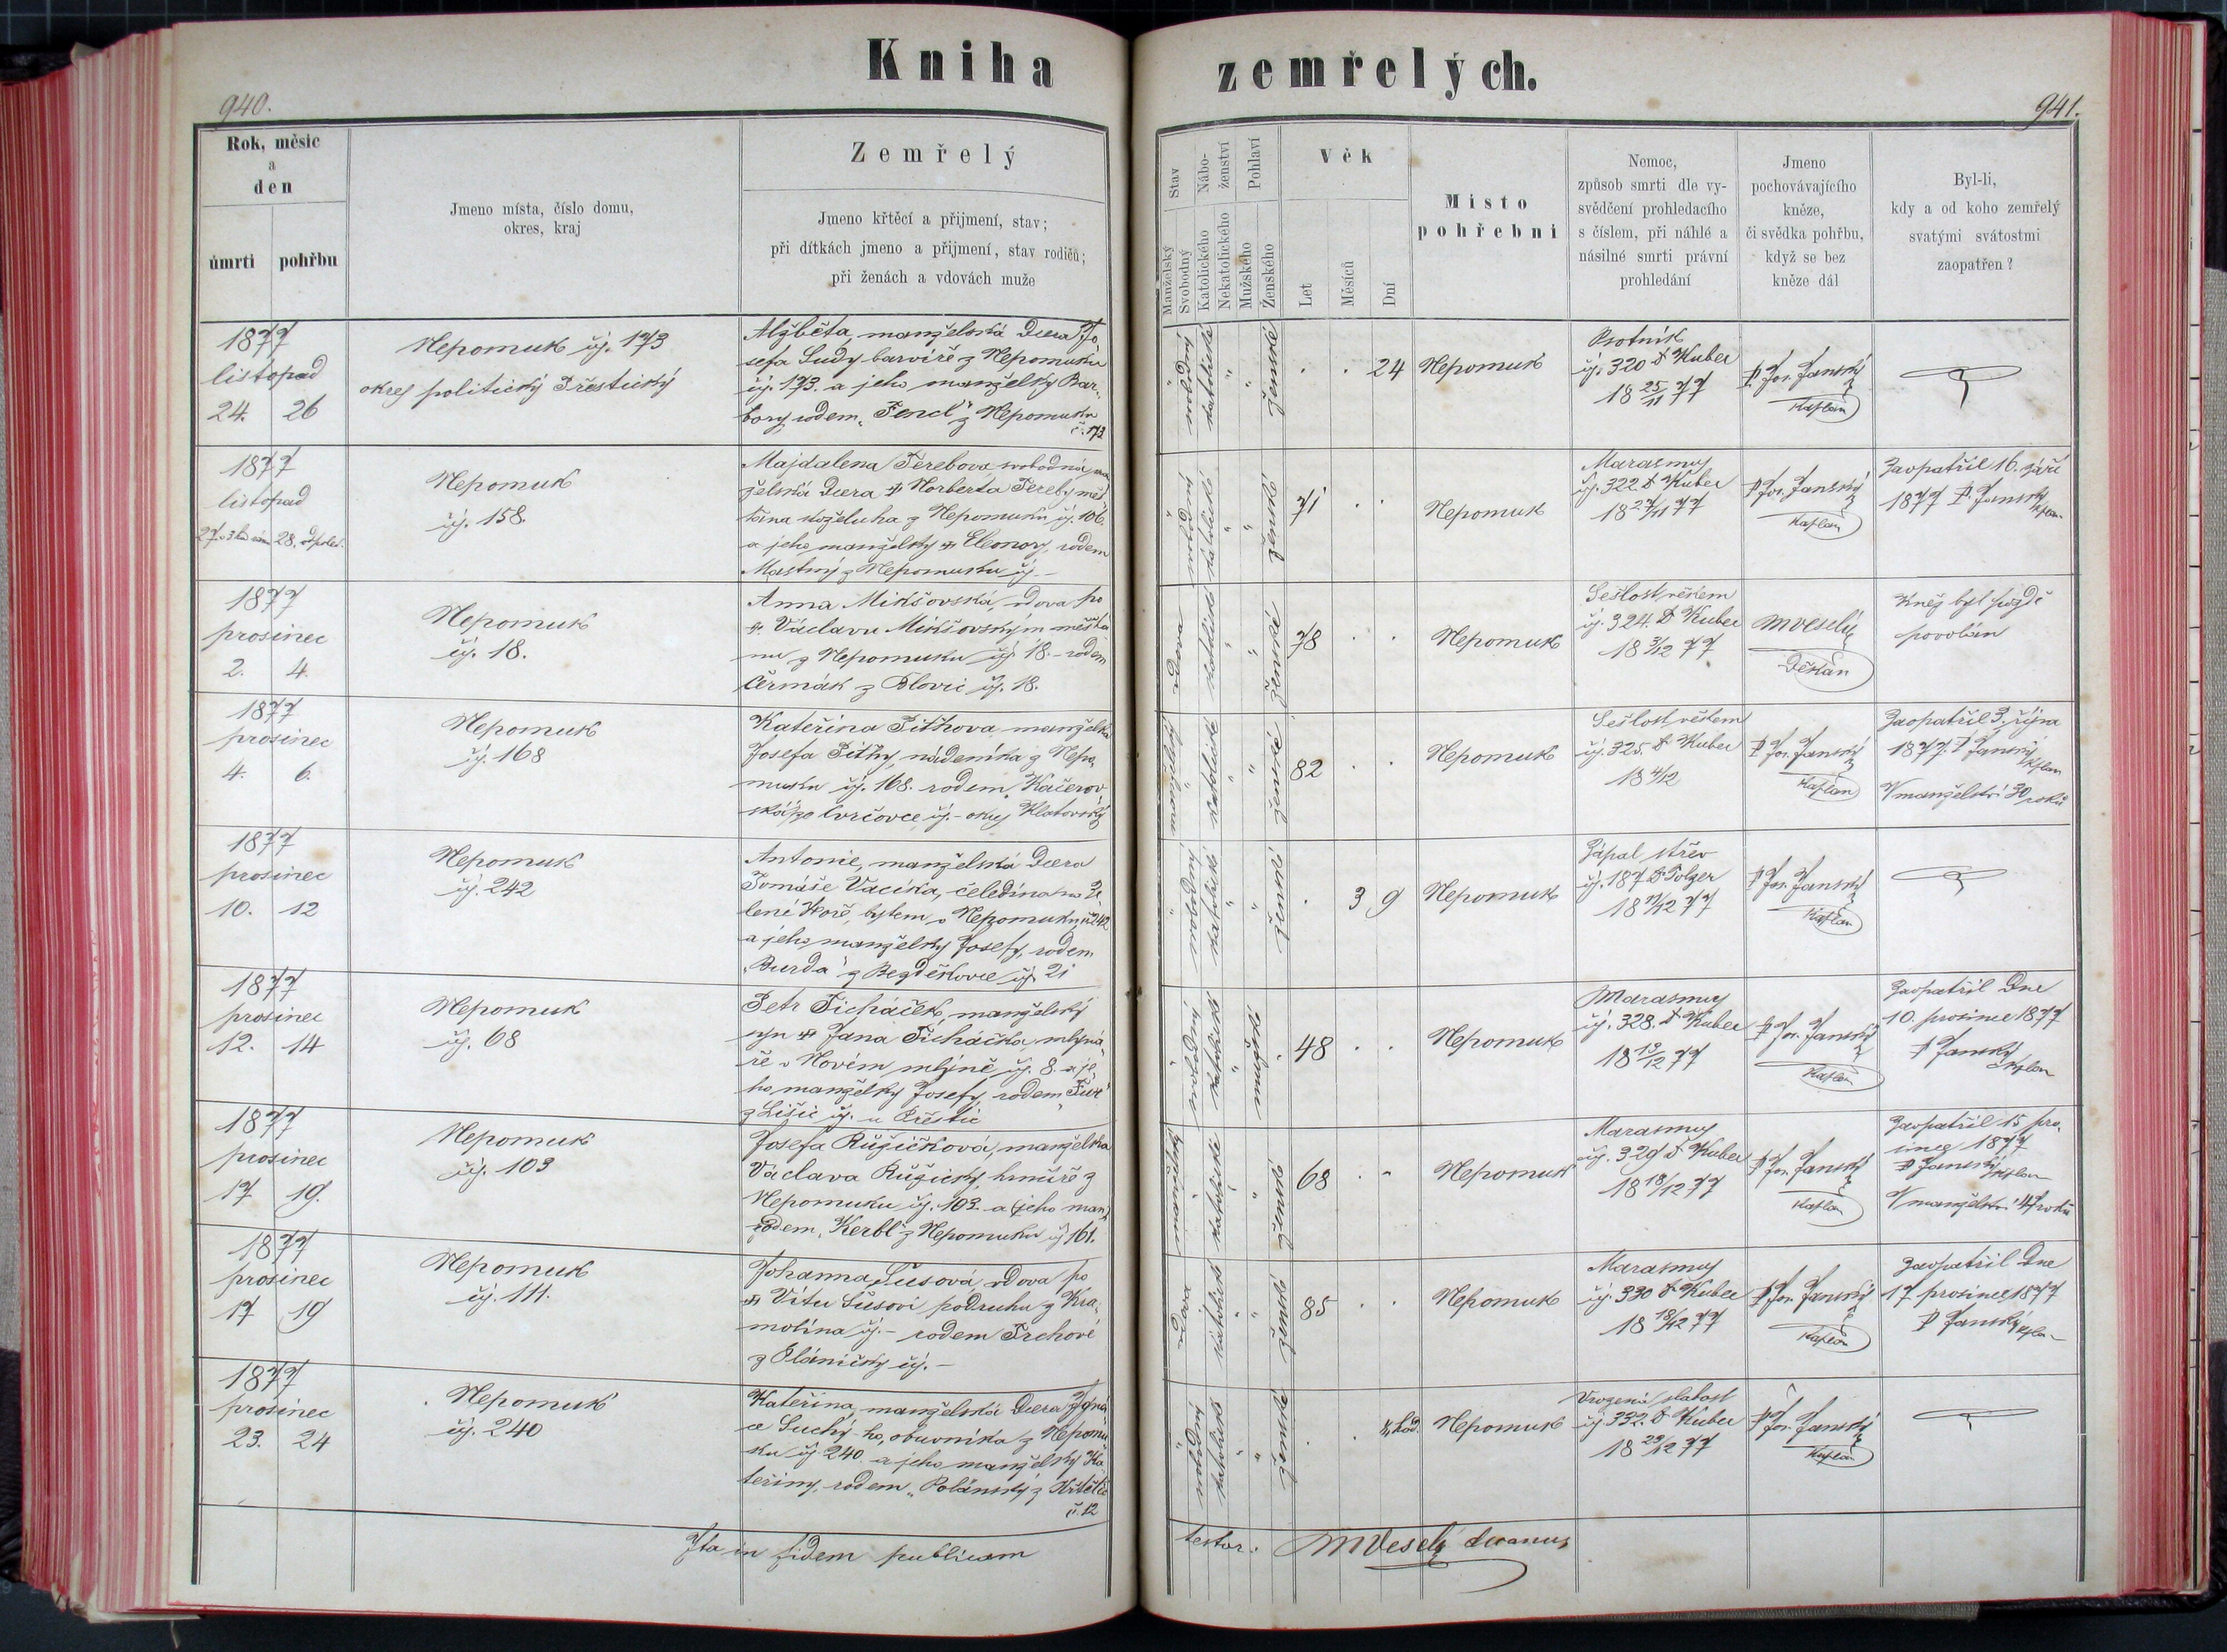 Kniha zemřelých.
940.
941.
Rok, měsíc
a
den
úmrtí
pohřbu
Jmeno místa, číslo domu,
okres, kraj
Zemřelý
Jmeno křtěcí a přijmení, stav;
při dítkách jmeno a přijmení, stav rodičů;
při ženách a vdovách muže
Stav
Manželský
Svobodný
Nábo-
ženství
Katolického
Nekatolického
Pohlaví
Mužského
Ženského
Věk
Let
Měsíců
Dní
Místo
pohřební
Nemoc,
způsob smrti dle vy-
svědčení prohledacího
s číslem, při náhlé a
násilné smrti právní
prohledání
Jmeno
pochovávajícího
kněze,
či svědka pohřbu,
když se bez
kněze dál
Byl-li,
kdy a od koho zemřelý
svatými svátostmi
zaopatřen?
1877
listopad
24. 26
Nepomuk čj. 173
okres politický Přestický
Alžběta, manželská dcera Jo-
sefa Sudy barvíře z Nepomuku
čj. 173. a jeho manželky Bar-
bory, rodem „Fencl" z Nepomuku
č. 173
svobodný
katolické
ženské
24
Nepomuk
Psotník
čj. 320 D Huber
18 25/11 77
P. Jos. Janský
Kaplan
1877
listopad
28.
Nepomuk
čj. 158.
Majdalena svobodná
želská dcera Norberta měš
z Nepomuku čj. 106.
a jeho manželky Eleonory, rodem
Mastný z Nepomuku čj. –
svobodný
katolické
ženské
71
Nepomuk
Marasmus
čj. 322 D Huber
18 27/11 77
P. Jos. Janský
Kaplan
Zaopatřil 16. září
1877 P. Janský
1877
prosinec
2. 4.
Nepomuk
čj. 18.
Anna Mikšovská, vdova po
Václavu Mikšovským měšťa
nu z Nepomuku čj. 18. – rodem
Čermák z Blovic čj. 18.
vdova
katolické
ženské
78
Nepomuk
Sešlost věkem
čj. 324. D Huber
18 3/12 77
MVeselý
Děkan
Kněz byl pozdě
povolán
1877
prosinec
4. 6.
Nepomuk
čj. 168
Kateřina manželka
Josefa nádeníka z Nepo-
muku čj. 168. rodem „Kačerov-
ská" ze čj. – okres Klatovský
katolické
ženské
82
Nepomuk
Sešlost věkem
čj. 325. D Huber
18 4/12
P. Jos. Janský
Kaplan
Zaopatřil 3. října
1877. P Janský
kaplan
V manželství 30 roků
1877
prosinec
10. 12
Nepomuk
čj. 242
Antonie, manželská dcera
Tomáše Vacíka, čeledína na Ze-
lené Hoře, bytem v Nepomuku, č. 242
a jeho manželky Josefy, rodem
„Burda" z čj. 21
svobodný
katolické
ženské
3 9
Nepomuk
Zápal střev
čj. 187 D. Polzer
18 11/12 77
P. Jos. Janský
Kaplan
1877
prosinec
12. 14
Nepomuk
čj. 68
Petr Ticháček, manželský
syn Jana Ticháčka mlyná-
ře v Novém mlýně čj. 8. a je-
ho manželky Josefy, rodem
čj. u Přeštic
svobodný
katolické
mužské
48
Nepomuk
Marasmus
čj. 328. D Huber
18 13/12 77
P. Jos. Janský
Kaplan
Zaopatřil dne
10. prosince 1877
P Janský
kaplan
1877
prosinec
17 19.
Nepomuk
čj. 103
Josefa Růžičková, manželka
Václava Růžičky, hrnčíře z
Nepomuku čj. 103. a jeho man.
rodem „Kerbl" z Nepomuku čj 161.
katolické
ženské
68
Nepomuk
Marasmus
čj. 329 D Huber
18 18/12 77
P. Jos. Janský
Kaplan
Zaopatřil 15 pro-
since 1877
P Janský kaplan
V manželství 47 roků
1877
prosinec
17 19
Nepomuk
čj. 111.
Johanna Šusová, vdova po
Vítu Šusovi podruhu z Kra-
molína čj. – rodem
z Pláničky čj. –
vdova
katolické
ženské
85
Nepomuk
Marasmus
čj. 330 D Huber
18 18/12 77
P. Jos. Janský
Kaplan
Zaopatřil dne
17 prosince 1877
P Janský kaplan
1877
prosinec
23. 24
Nepomuk
čj. 240
Kateřina, manželská dcera Igná-
ce Suchý-ho, obuvníka z Nepomu
ku čj. 240 a jeho manželky Ka
teřiny, rodem „Polánský z
č. 12
svobodný
katolické
ženské
Nepomuk
Vrozená slabost
čj. 332. D Huber
18 23/12 77
P. Jos. Janský
Kaplan
Ita in fidem publicam
testor: MVeselý decanus